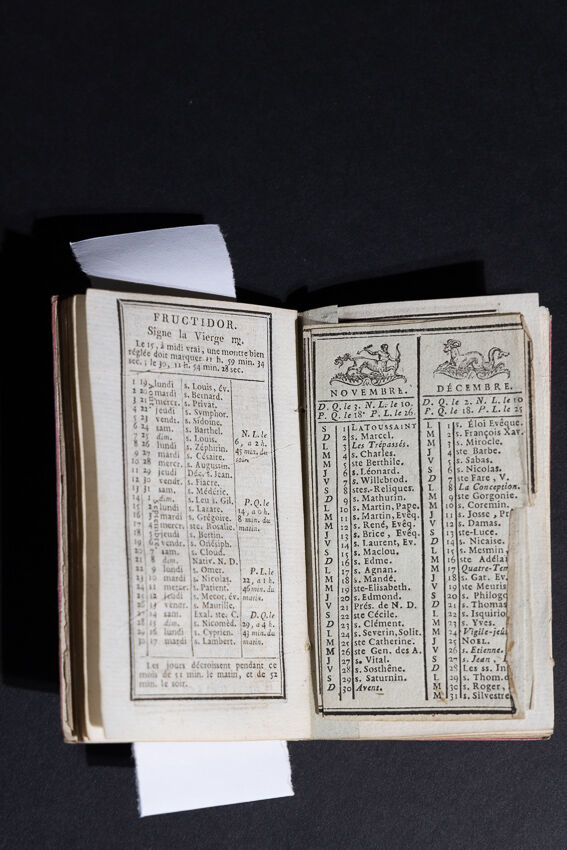 FRUCTIDOR.
Signe la Vierge ♍.
Le 15, à midi vrai, une montre bien
réglée doit marquer 11 h. 59 min. 34
sec.; le 30, 11 h. 54 min. 28 sec.
1 19 lundi s. Louis, év.
2 20 mardi s. Bernard.
3 21 mercr. s. Privat.
4 22 jeudi s. Symphor.
5 23 vendr. s. Sidoine.
6 24 sam. s. Barthel.
7 25 dim. s. Louis.
8 26 lundi s. Zéphirin.
9 27 mardi s. Césaire.
10 28 mercr. s. Augustin.
11 29 jeudi Déc. s. Jean.
12 30 vendr. s. Fiacre.
13 31 sam. s. Médéric.
14 1 dim. s. Leu s. Gil.
15 2 lundi s. Lazare.
16 3 mardi s. Grégoire.
17 4 mercr. ste. Rosalie.
18 5 jeudi s. Bertin.
19 6 vendr. s. Onésiph.
20 7 sam. s. Cloud.
21 8 dim. Nativ. N. D.
22 9 lundi s. Omer.
23 10 mardi s. Nicolas.
24 11 mercr. s. Patient.
25 12 jeudi s. Mecor, év.
26 13 vendr. s. Maurille.
27 14 sam. Exal. ste. C.
28 15 dim. s. Nicomèd.
29 16 lundi s. Cyprien.
30 17 mardi s. Lambert.
N. L. le
6, a 2 h.
45 min. du
soir.
P. Q. le
14, a 0 h.
8 min. du
matin.
P. L. le
22, a 1 h.
46 min. du
matin.
D. Q. le
29, a 4 h.
43 min. du
matin.
Les jours décroissent pendant ce
mois de 51 min. le matin, et de 52
min. le soir.
NOVEMBRE.
D. Q. le 3. N. L. le 10.
P. Q. le 18. P. L. le 26.
S 1 LA TOUSSAINT
D 2 s. Marcel.
L 3 Les Trépassés.
M 4 s. Charles.
M 5 ste Berthile.
J 6 s. Léonard.
V 7 s. Willebrod.
S 8 stes.-Reliques.
D 9 s. Mathurin.
L 10 s. Martin, Pape.
M 11 s. Martin, Evêq.
M 12 s. René, Evêq.
J 13 s. Brice, Evêq.
V 14 s. Laurent, Ev.
S 15 s. Maclou.
D 16 s. Edme.
L 17 s. Agnan.
M 18 s. Mandé.
M 19 ste-Elisabeth.
J 20 s. Edmond.
V 21 Prés. de N. D.
S 22 ste Cécile.
D 23 s. Clément.
L 24 s. Severin, Solit.
M 25 ste Catherine.
M 26 ste Gen. des A.
J 27 s. Vital.
V 28 s. Sosthêne.
S 29 s. Saturnin.
D 30 Avent.
DÉCEMBRE.
D. Q. le 2. N. L. le 10
P. Q. le 18. P. L. le 25
L 1 s. Éloi Evêque.
M 2 s. François Xav.
M 3 s. Mirocle.
J 4 ste Barbe.
V 5 s. Sabas.
S 6 s. Nicolas.
D 7 ste Fare, V.
L 8 La Conception.
M 9 ste Gorgonie.
M 10 s. Coremin.
J 11 s. Josse, Pr
V 12 s. Damas.
S 13 ste-Luce.
D 14 s. Nicaise.
L 15 s. Mesmin,
M 16 ste Adélaï
M 17 Quatre-Tem
J 18 s. Gat. Ev.
V 19 ste Meuris
S 20 s. Philogo
D 21 s. Thomas
L 22 s. Isquirio
M 23 s. Yves.
M 24 Vigile-jeû
J 25 NOEL.
V 26 s. Etienne.
S 27 s. Jean,
D 28 Les ss. In
L 29 s. Thom. d
M 30 s. Roger,
M 31 s. Silvestre